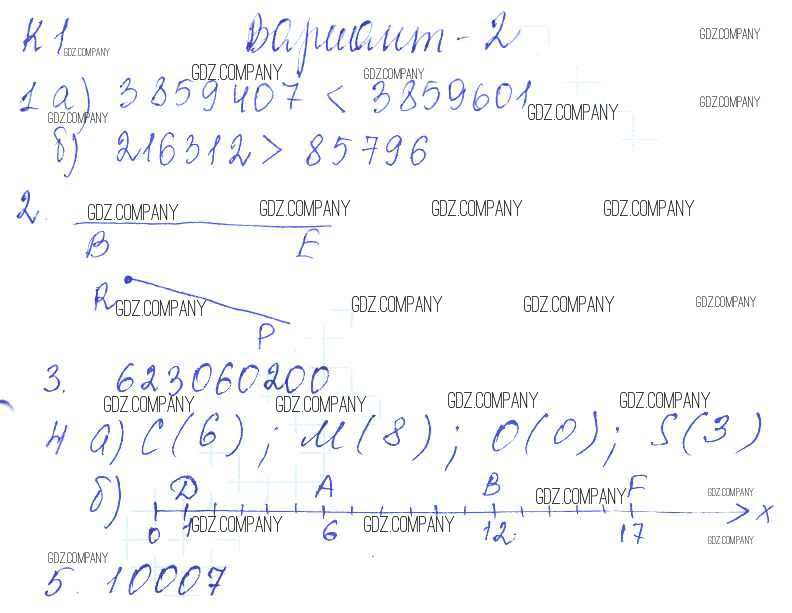 К1 Вариант - 2
GDZ.COMPANY GDZ.COMPANY
GDZ.COMPANY GDZ.COMPANY
1 а) 3859407 < 3859601
GDZ.COMPANY GDZ.COMPANY GDZ.COMPANY
б) 216312 > 85796
2. GDZ.COMPANY GDZ.COMPANY GDZ.COMPANY GDZ.COMPANY
B E
R GDZ.COMPANY GDZ.COMPANY GDZ.COMPANY GDZ.COMPANY
P
3. 623060200
GDZ.COMPANY GDZ.COMPANY GDZ.COMPANY GDZ.COMPANY
4 а) C(6); M(8); O(0); S(3)
б) D A B F
GDZ.COMPANY GDZ.COMPANY
0 1 6 12 17 x
GDZ.COMPANY GDZ.COMPANY GDZ.COMPANY
GDZ.COMPANY
5. 10007